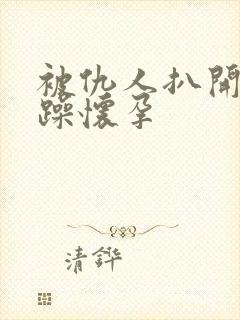 被仇人扒開
躁懷孕
清鏵